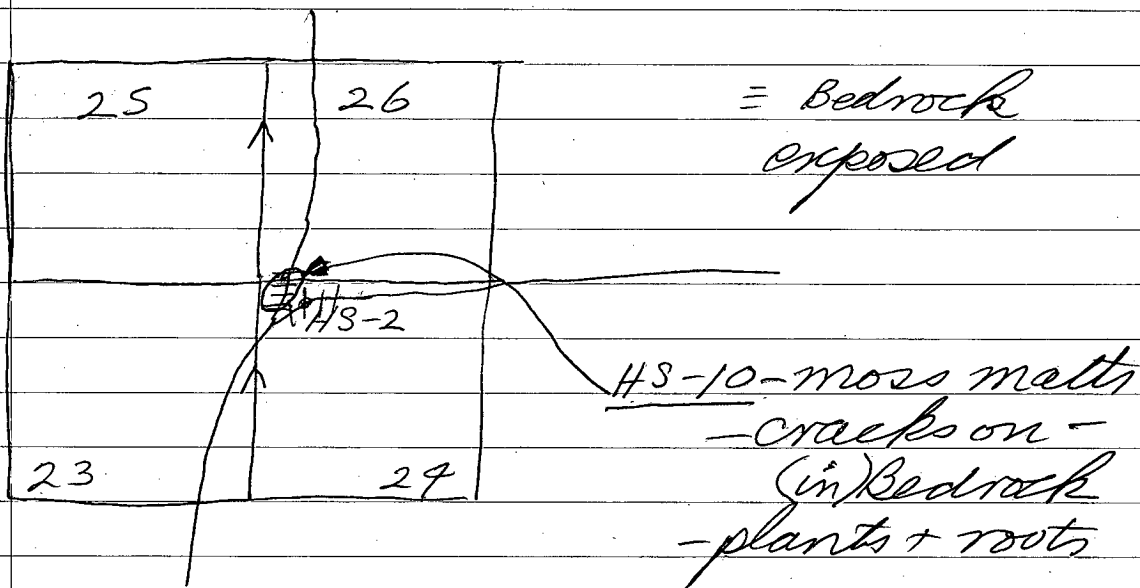 25 26
≡ Bedrock
exposed
HS-2
HS-10-moss matts
-cracks on-
(in)Bedrock
23 24
-plants + roots